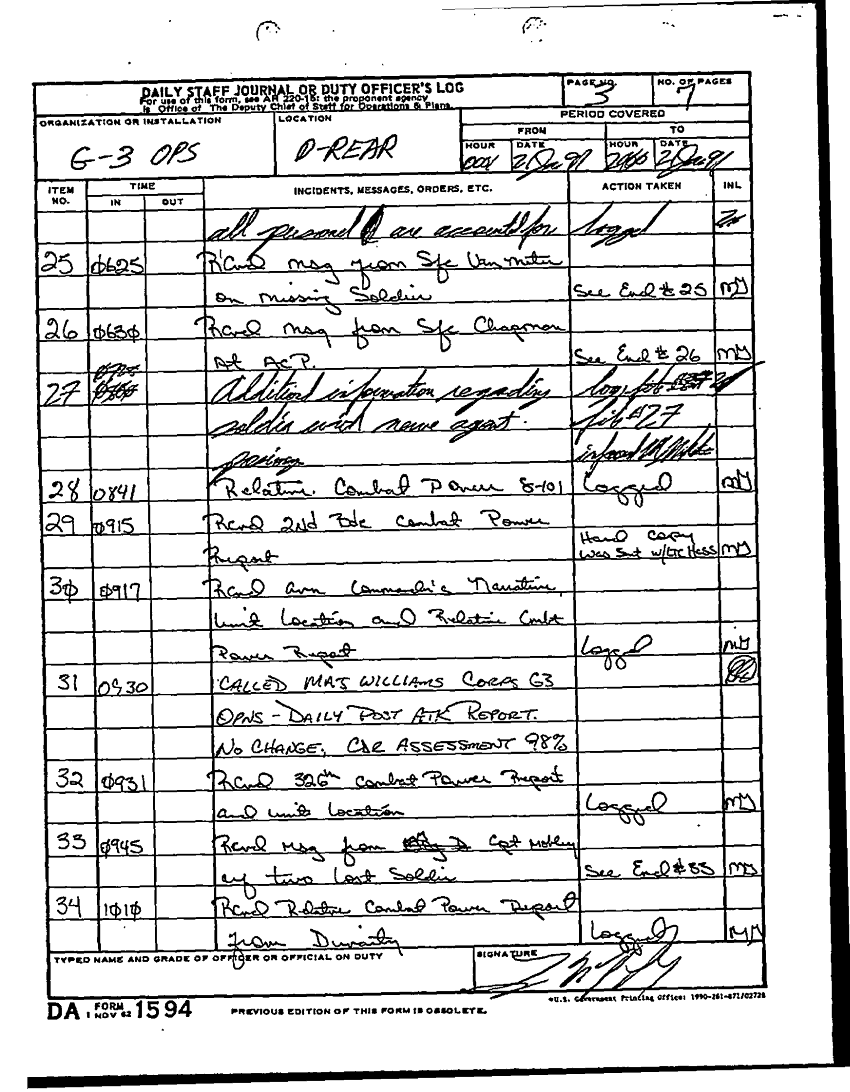 DAILY STAFF JOURNAL OR DUTY OFFICER'S LOG
For use of this form, see AR 220-15: the proponent agency
is Office of The Deputy Chief of Staff for Operations & Plans.
PAGE NO.
3
NO. OF PAGES
7
ORGANIZATION OR INSTALLATION
G-3 OPS
LOCATION
D-REAR
PERIOD COVERED
FROM
TO
HOUR
0001
DATE
HOUR
DATE
ITEM NO.
TIME
IN
OUT
INCIDENTS, MESSAGES, ORDERS, ETC.
ACTION TAKEN
INL
all personel are accounted for logged
25 0625 R'Cvd msg from Sfc Van Meter
on missing Soldier See Encl # 25 MJ
26 0630 Rcvd msg from Sfc Chapman
At ACP. See Encl # 26 MJ
27 Additional information regarding
soldier with nerve agent #27
28 0841 Relative Combat Power 8-101 Logged MJ
29 0915 Rcvd 2nd Bde Combat Power
Report Hard Copy
Was Sent w/LTC Hess MJ
30 0917 Rcvd avn Commander's Narrative,
unit Location and Relative Cmbt
Power Report Logged MJ
31 0930 CALLED MAJ WILLIAMS CORPS G3
OPNS - DAILY POST ATK REPORT.
NO CHANGE; CDR ASSESSMENT 98%
32 0931 Rcvd 326th Combat Power Report
and unit Location Logged MJ
33 0945 Rcvd Msg from Cpt
of two Lost Soldier See Encl #33 MJ
34 1010 Rcvd Relative Combat Power Report
from Divarty Logged MJ
TYPED NAME AND GRADE OF OFFICER OR OFFICIAL ON DUTY
SIGNATURE
DA FORM 1 NOV 62 1594
PREVIOUS EDITION OF THIS FORM IS OBSOLETE.
*U.S. Government Printing Office: 1990-261-871/02728